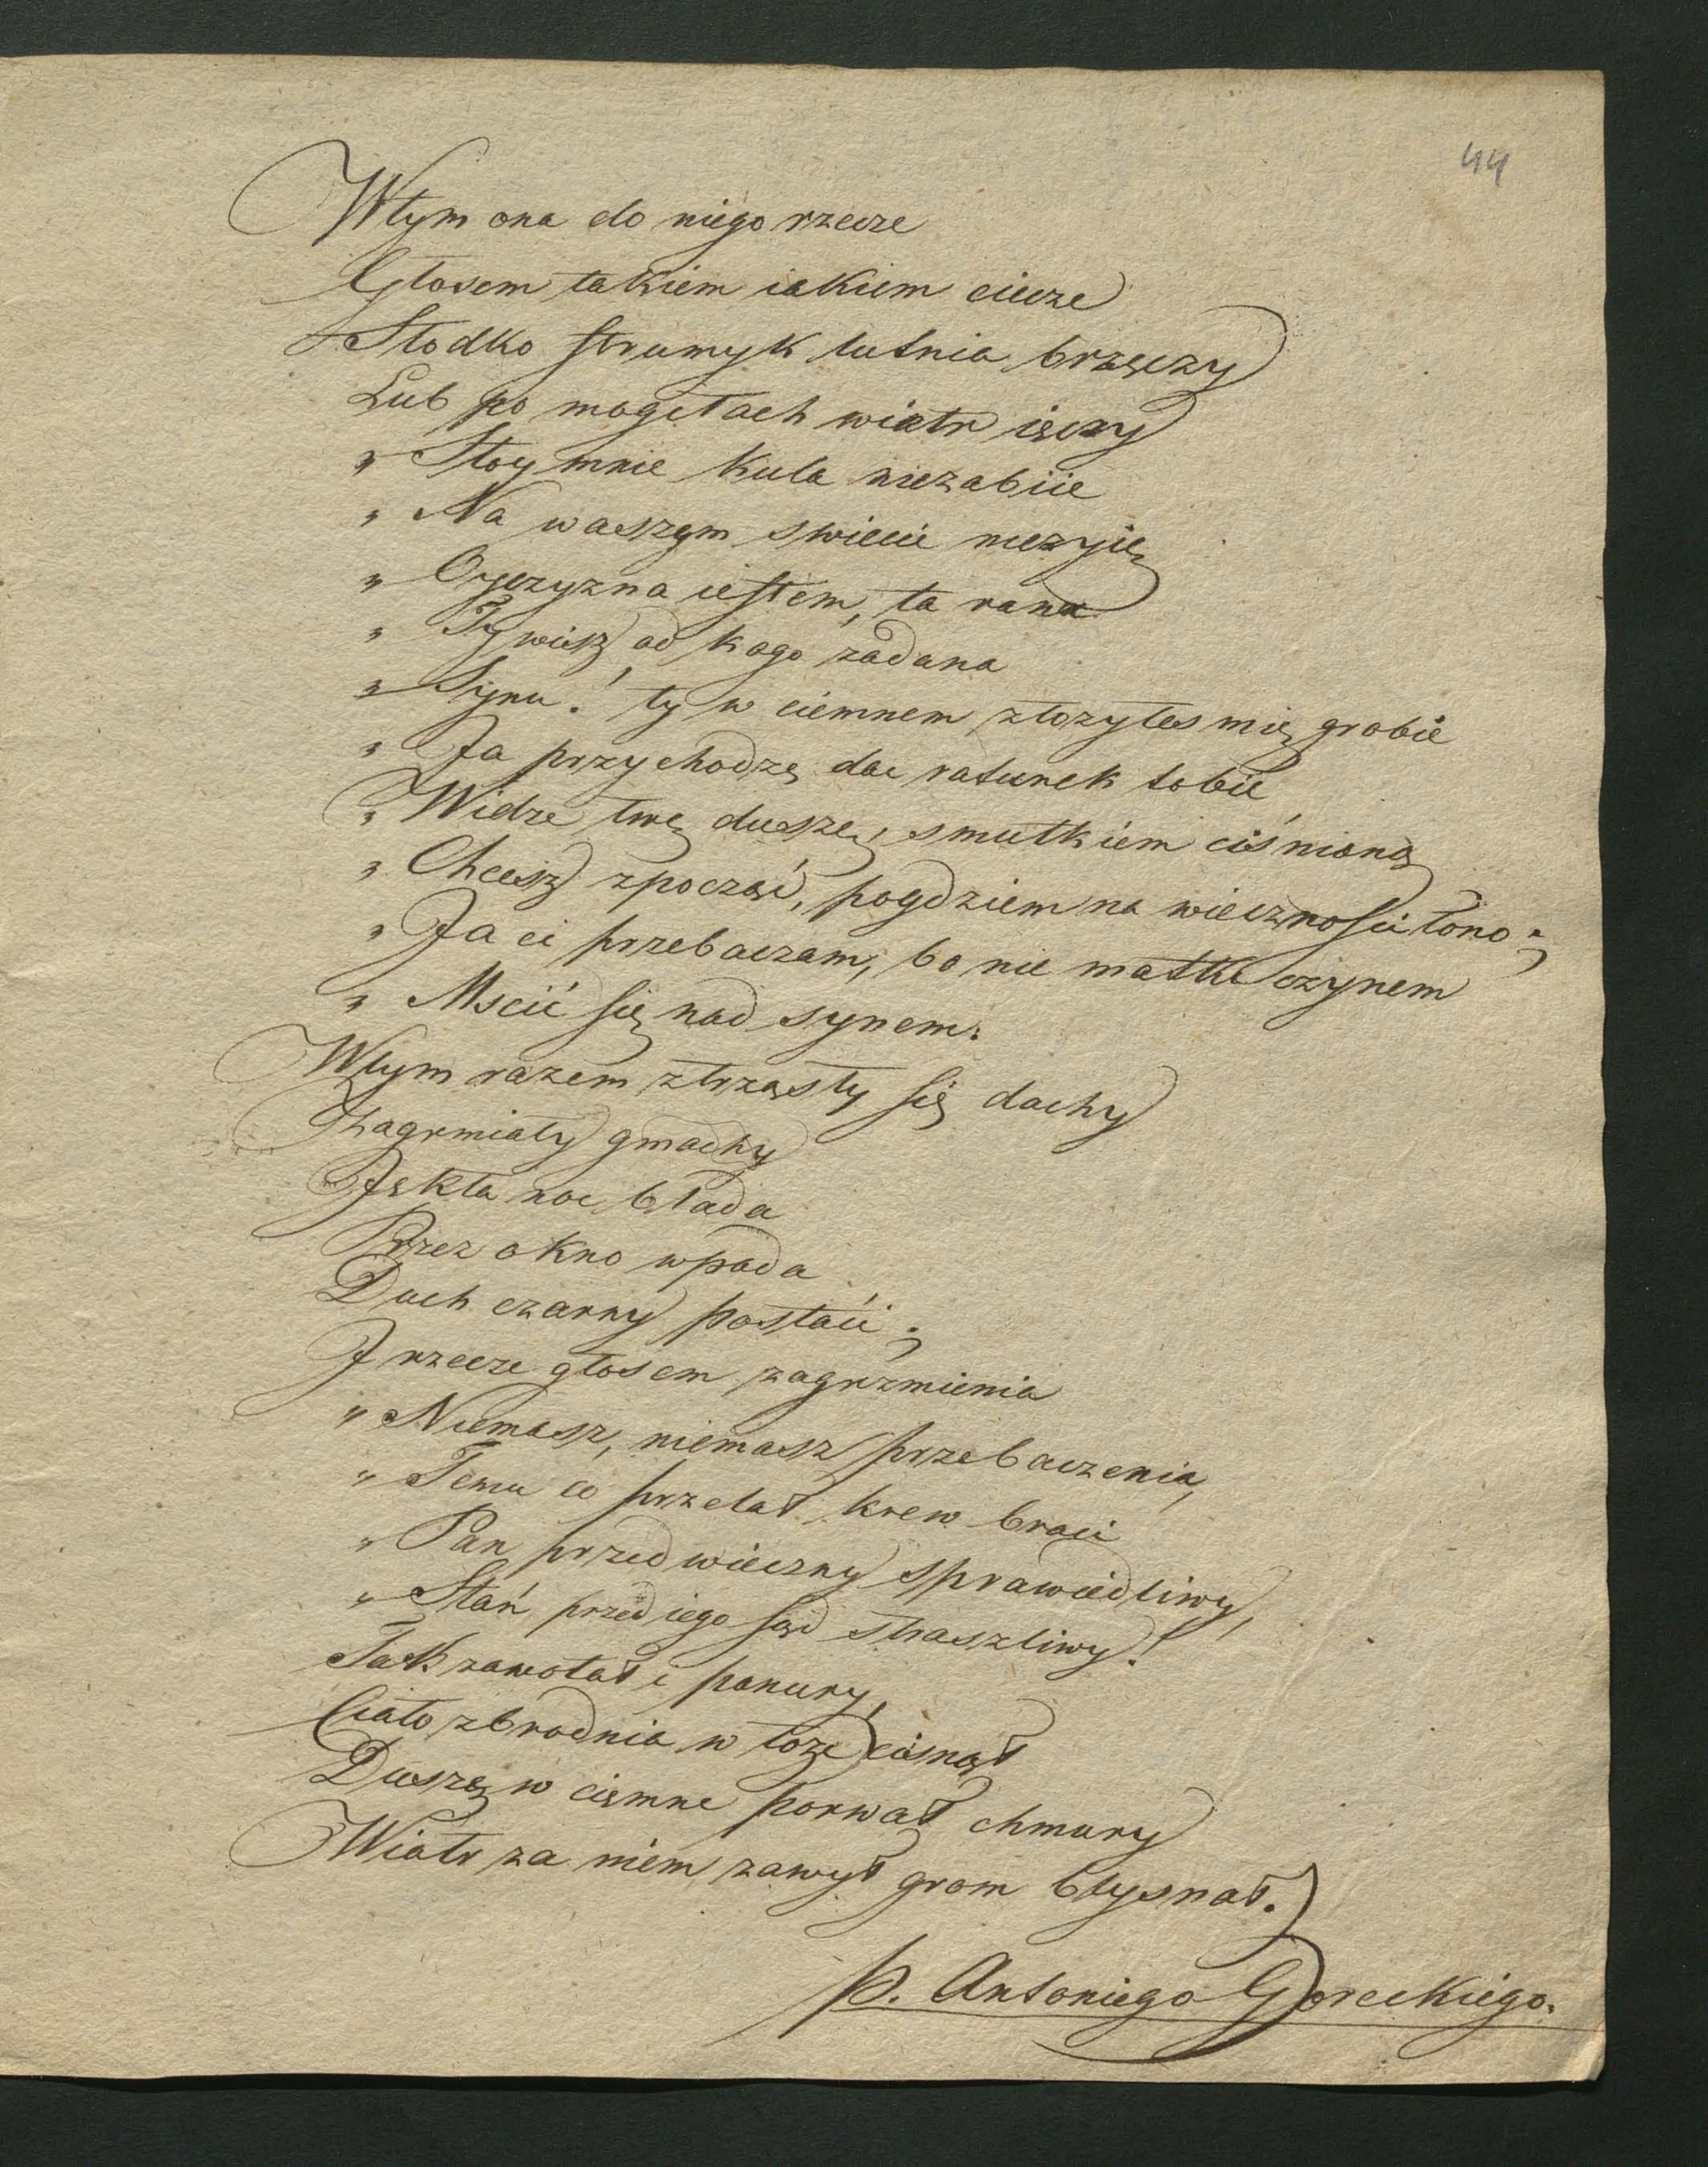 44
Wtym ona do niego rzecze
Głosem takiem iakiem ciecze
Słodko strumyk lutnia brzęczy
Lub po mogiłach wiatr ięczy
„ Stoy mnie kula niezabiie
„ Na waszym swiecie nieżyię
„ Oyczyzna iestem, ta rana
„ Ty wiesz od kogo zadana
„ Synu! ty w ciemnem złozyłes mię grobie
„ Ja przychodzę dac ratunek tobie
„ Widze twę duszę, smutkiem ciśnioną
„ Chcesz zpocząć, poydziem na wiecznosci łono;
„ Ja ci przebaczam, bo nie matki czynem
„ Mscić się nad synem.
Wtym razem ztrzęsły się dachy
Zagrmiały gmachy
Jękła noc blada
Przez okno wpada
Duch czarny postaci;
J rzecze głosem zagrzmienia
„ Niemasz, niemasz przebaczenia,
„ Temu co przelał krew braci
„ Pan przedwieczny sprawiedliwy,
„ Stań przed iego sąd straszliwy!
Tak zawołał i ponury,
Ciało zbrodnia w łoże cisnął
Duszę w ciemne porwał chmury
Wiatr za niem zawył grom błysnął.
p. Antoniego Goreckiego.